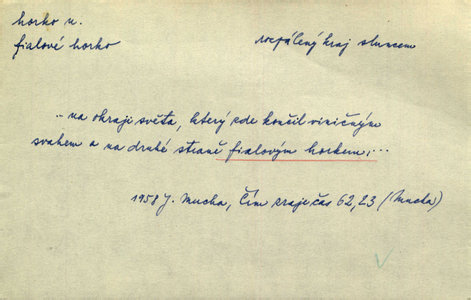 horko n.
fialové horko
rozpálený kraj sluncem
..na okraji světa, který zde končil viničným
svahem a na druhé straně fialovým horkem,...
1958 J. Mucha, Čím zraje čas 62,23 (Mucha)